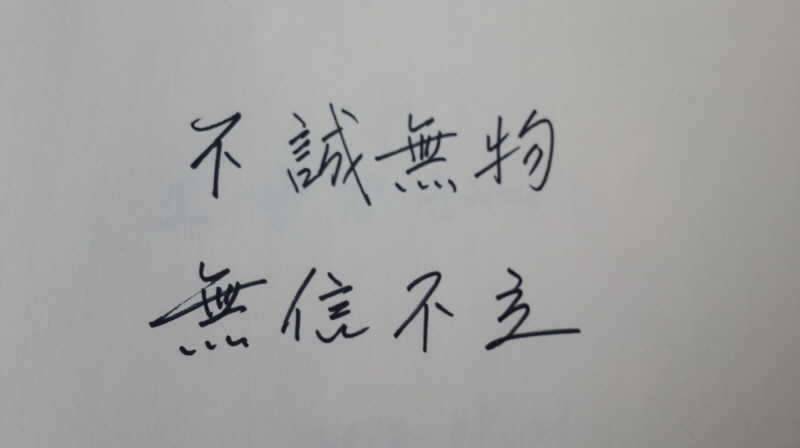 不誠無物
無信不立